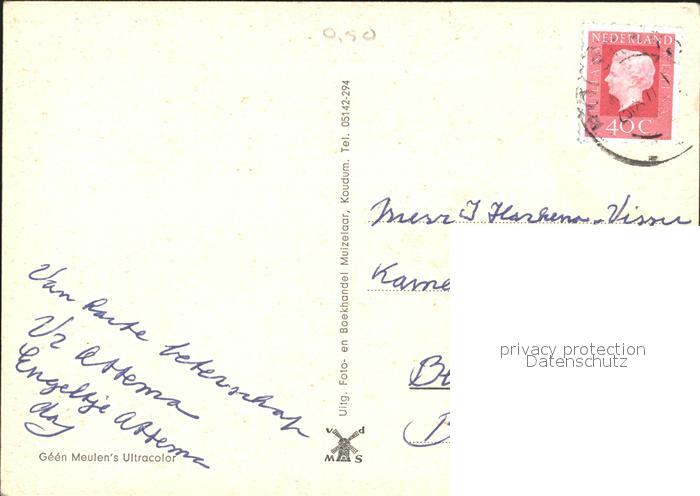 0,50
NEDERLAND
40 C
Uitg. Foto- en Boekhandel Muizelaar, Koudum. Tel. 05142-294
Mevr J Harkema-Visser
Kame
B
B
privacy protection
Datenschutz
Van harte beterschap
Vr Attema
Engeltje Attema
dag
v d
M S
Géén Meulen's Ultracolor